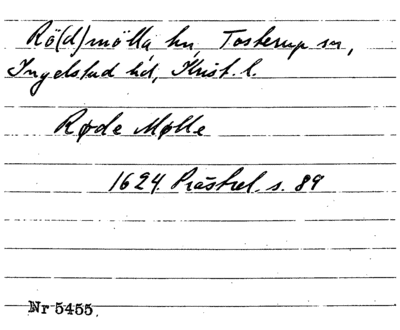 Rö(d)mölla hu, Tosterup sn,
Ingelstad hd, Krist. l.
Røde Mølle
1624. Prästrel. s. 89
Nr 5455.